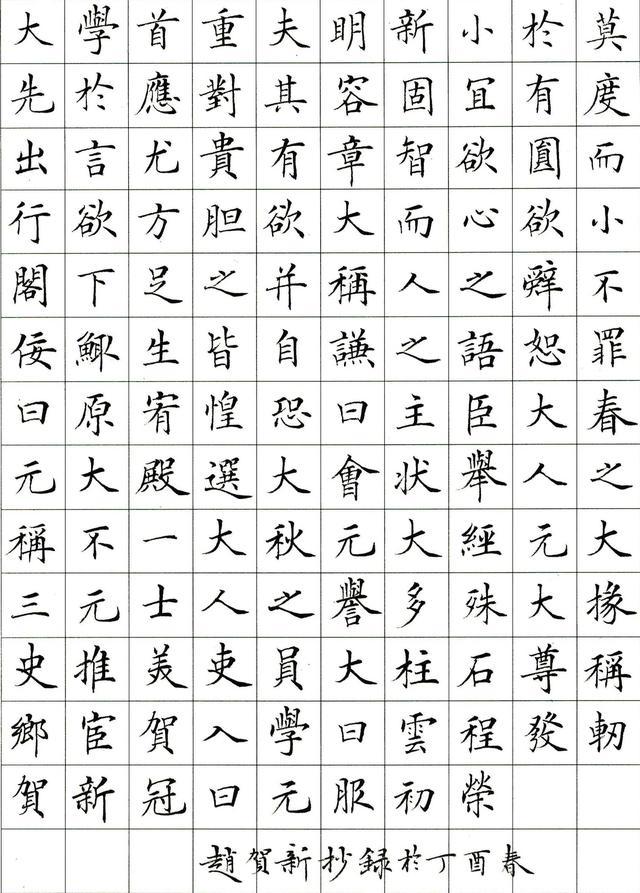 大學首重夫明新小於莫
先於應對其容固冝有度
出言尤貴有章智欲圓而
行欲方胆欲大而心欲小
閣下足之并稱人之辭不
佞鯫生皆自謙之語恕罪
曰原宥惶恐曰主臣大春
元大殿選大會狀舉人之
稱不一大秋元大經元大
三元士人之譽多殊大掾
史推美吏員大柱石尊稱
鄉宦賀入學曰雲程發軔
賀新冠曰元服初榮
趙賀新抄録於丁酉春